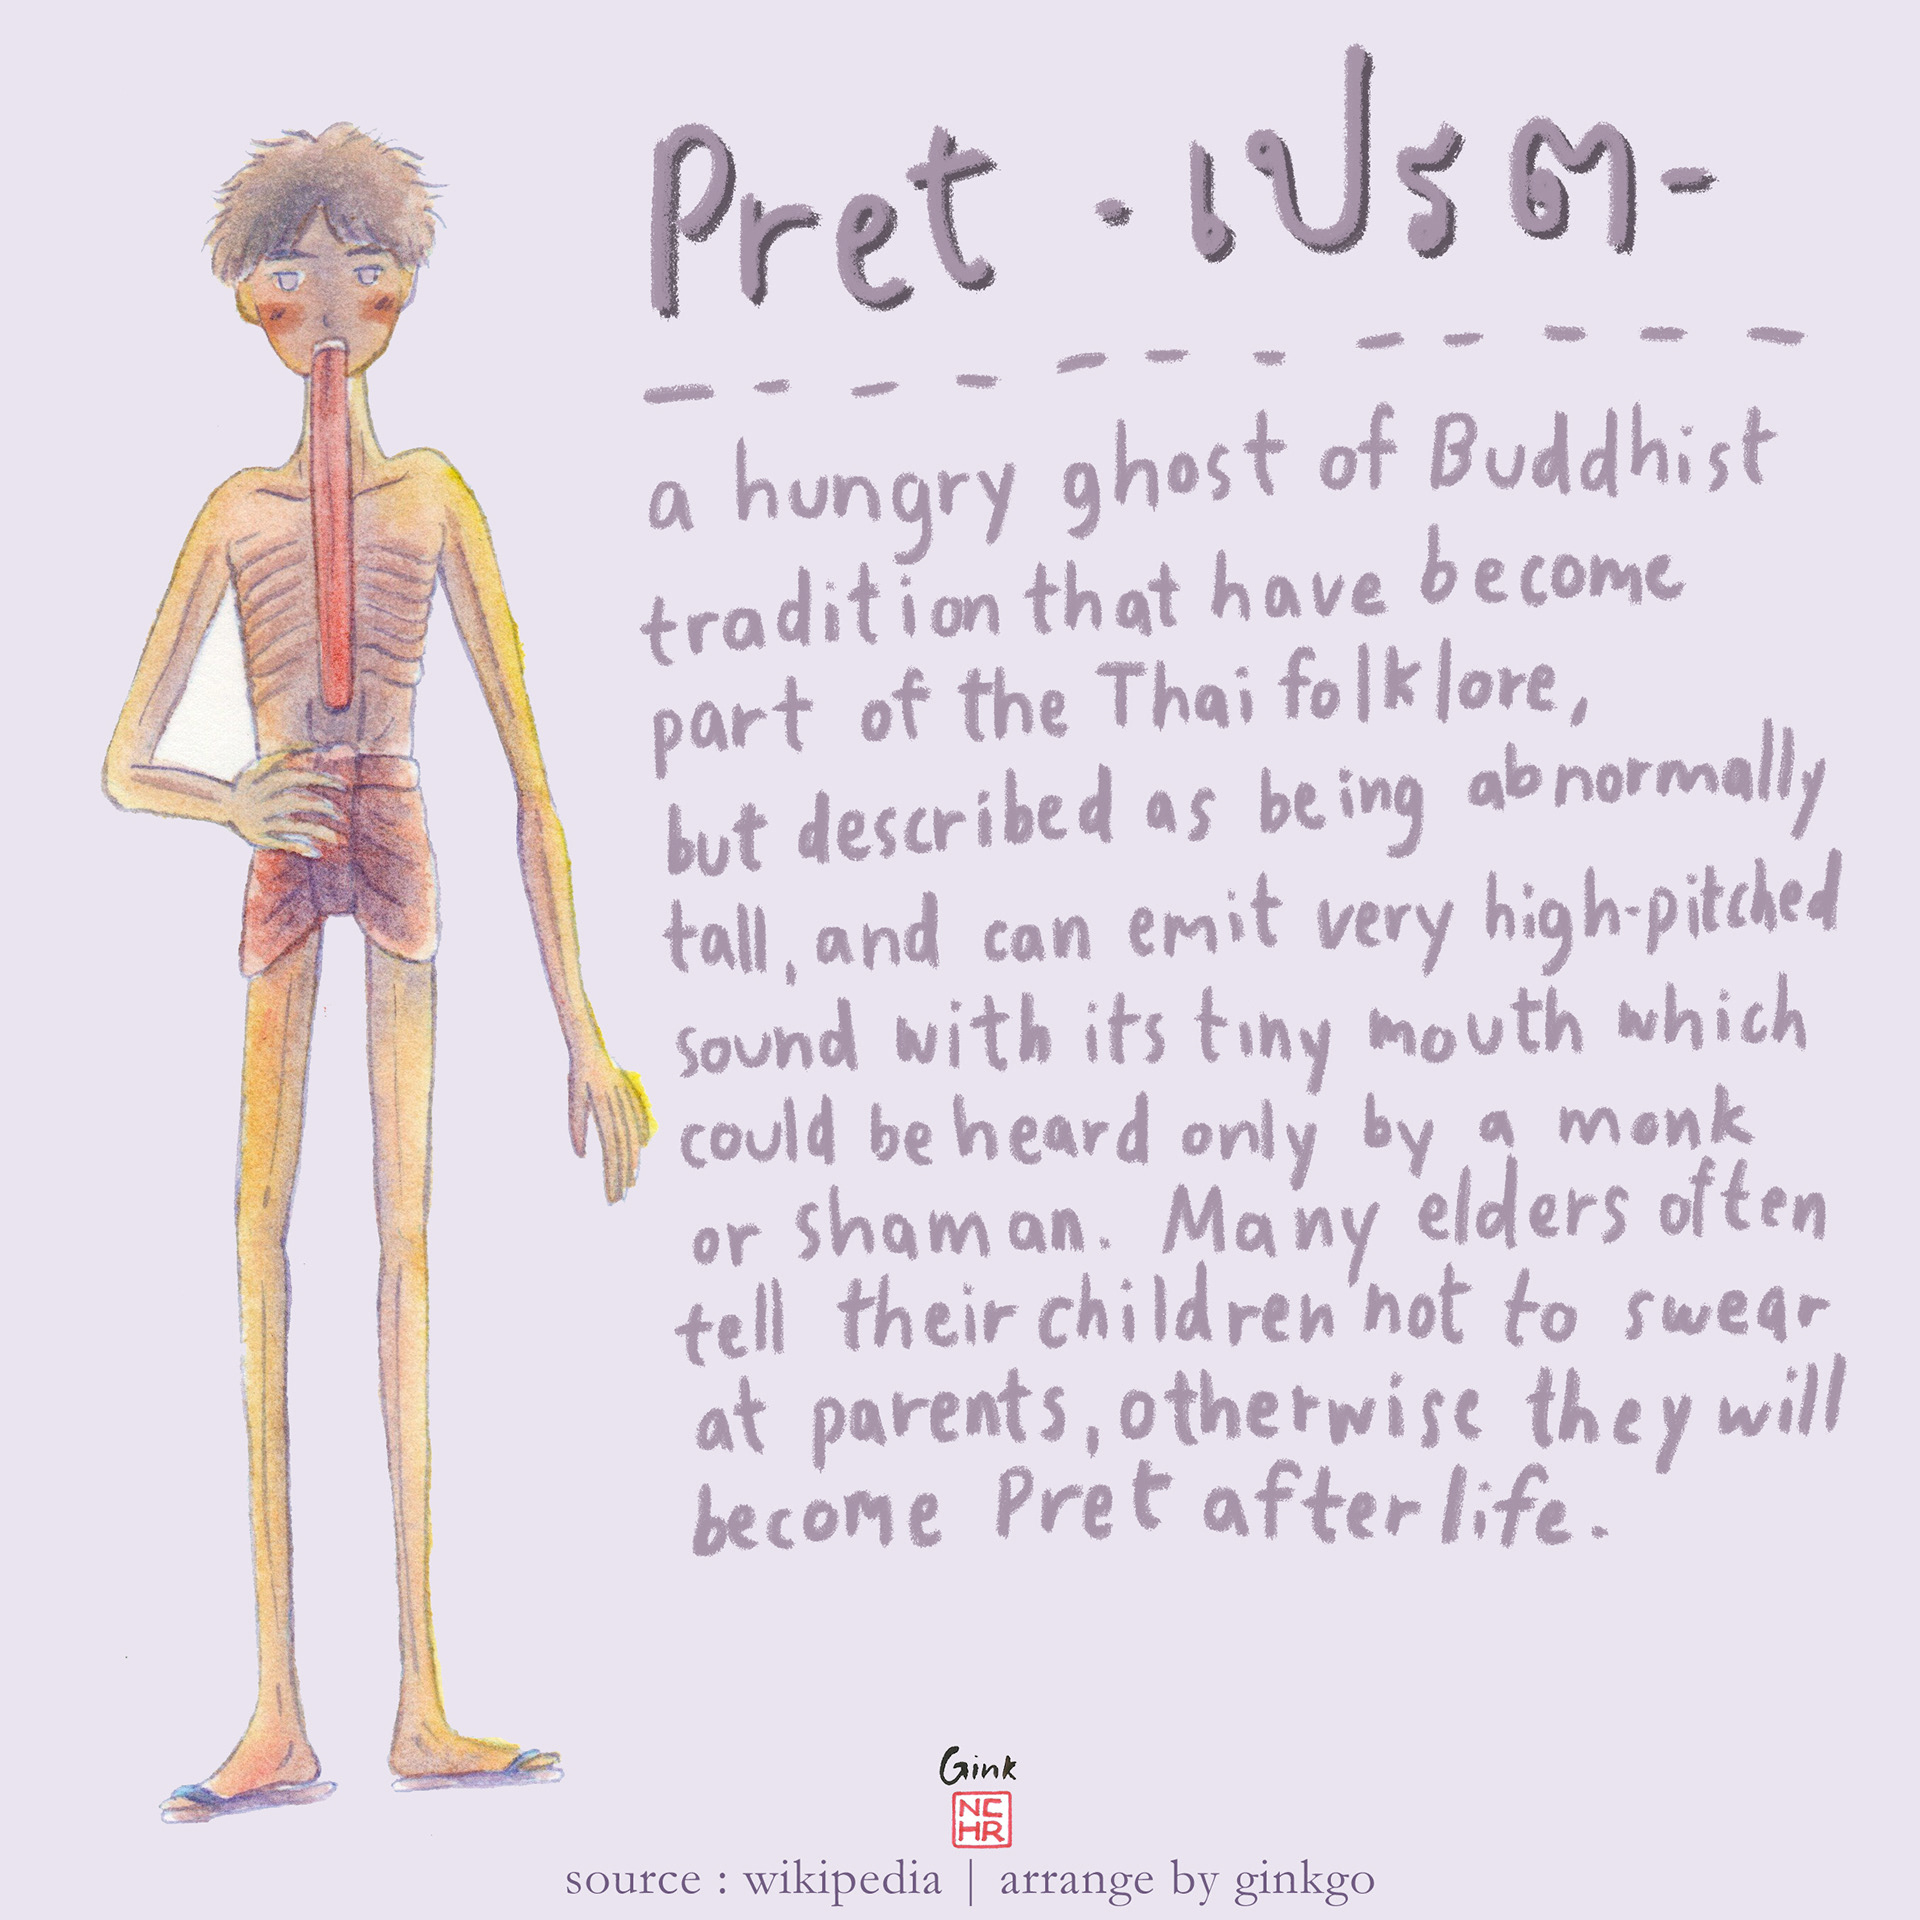 Pret - เปรต -
a hungry ghost of Buddhist
tradition that have become
part of the Thai folklore,
but described as being abnormally
tall, and can emit very high-pitched
sound with its tiny mouth which
could be heard only by a monk
or shaman. Many elders often
tell their children not to swear
at parents, otherwise they will
become Pret after life.
Gink
NC
HR
source : wikipedia | arrange by ginkgo